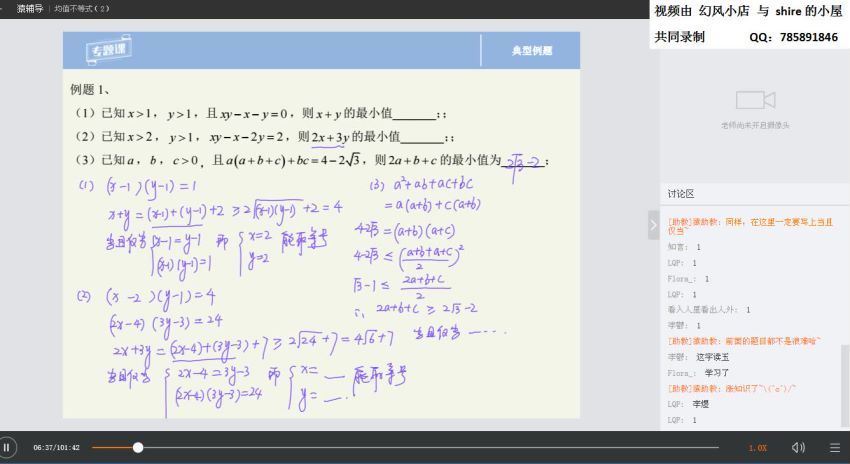 猿辅导 | 均值不等式(2)
视频由 幻风小店 与 shire 的小屋
共同录制 QQ: 785891846
专题课
典型例题
例题 1、
(1) 已知 x>1, y>1, 且 xy-x-y=0, 则 x+y 的最小值______;;
(2) 已知 x>2, y>1, xy-x-2y=2, 则 2x+3y 的最小值______;;
(3) 已知 a, b, c>0, 且 a(a+b+c)+bc=4-2√3, 则 2a+b+c 的最小值为 2√3-2 ;
(1) (x-1)(y-1)=1
x+y=(x-1)+(y-1)+2≥2√(x-1)(y-1)+2=4
当且仅当 { x-1=y-1 (x-1)(y-1)=1 即 { x=2 y=2 能取等号
(2) (x-2)(y-1)=4
(2x-4)(3y-3)=24
2x+3y=(2x-4)+(3y-3)+7≥2√24+7=4√6+7 当且仅当 ······
当且仅当 { 2x-4=3y-3 (2x-4)(3y-3)=24 即 { x=— y=—. 能取等号
(3) a²+ab+ac+bc
=a(a+b)+c(a+b)
4-2√3=(a+b)(a+c)
4-2√3≤((a+b+a+c)/2)²
√3-1≤(2a+b+c)/2
∴ 2a+b+c≥2√3-2
老师尚未开启摄像头
讨论区
[助教]猿助教: 同样, 在这里一定要写上当且
仅当~
知言: 1
LQP: 1
Flora_: 1
LQP: 1
看人人里看出人外: 1
宇鬱: 1
[助教]猿助教: 前面的题目都不是很难哈~
宇鬱: 这字读玉
Flora_: 学习了
[助教]猿助教: 涨知识了~\(^o^)/~
LQP: 字煜
LQP: 1
06:37/101:42
1.0X